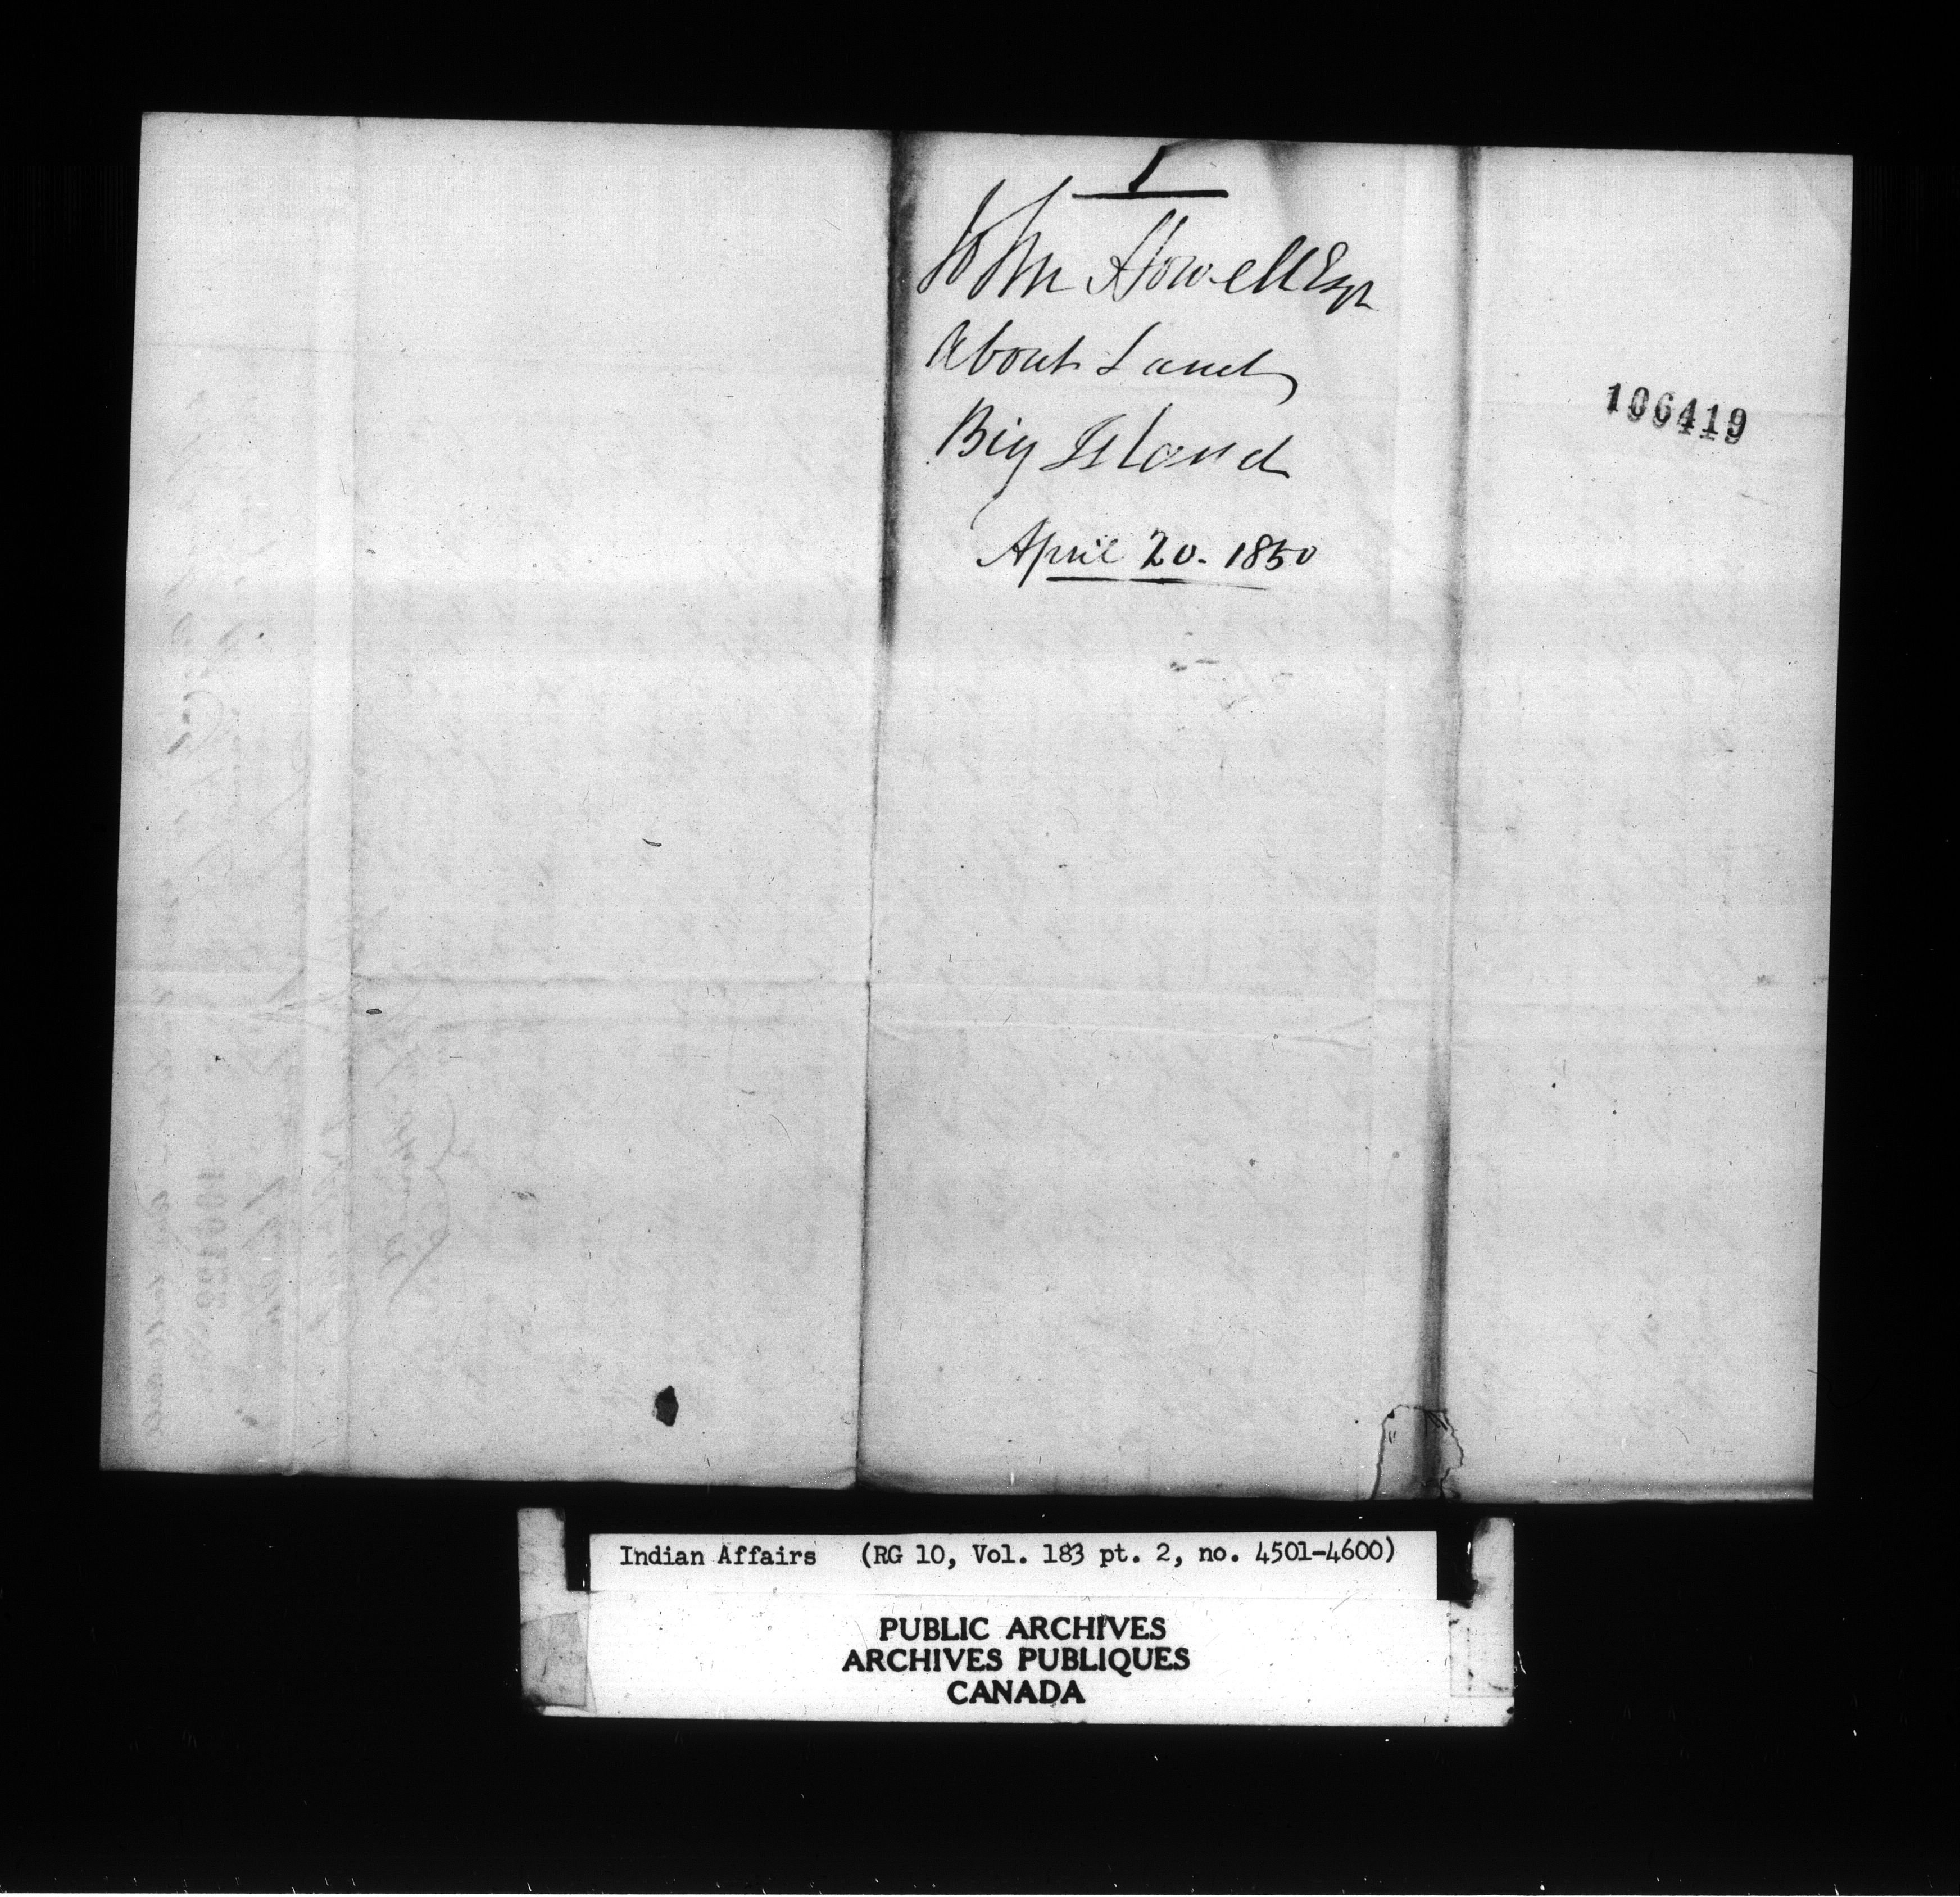 1
John Howell Esqr
About Land
Big Island
April 20. 1850
106419
Indian Affairs (RG 10, Vol. 183 pt. 2, no. 4501-4600)
PUBLIC ARCHIVES
ARCHIVES PUBLIQUES
CANADA